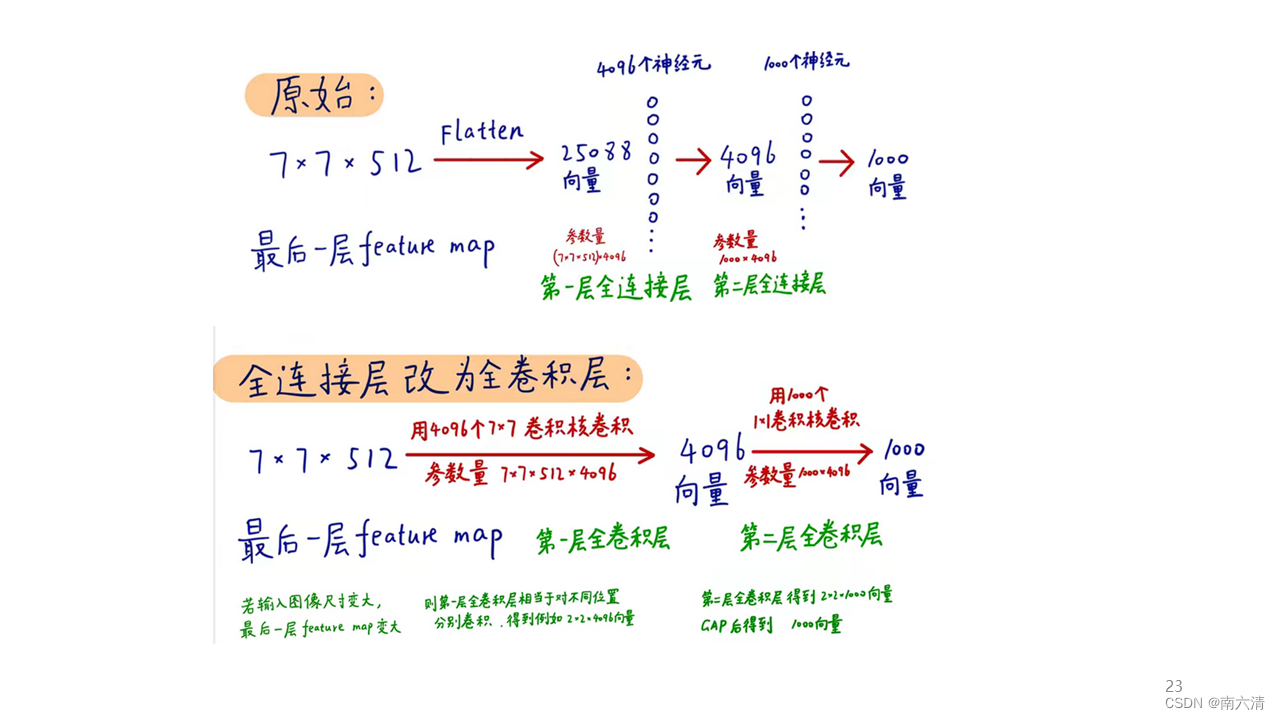 原始：
4096个神经元
1000个神经元
7×7×512
Flatten
25088
向量
4096
向量
1000
向量
最后一层feature map
参数量
(7×7×512)×4096
参数量
1000×4096
第一层全连接层
第二层全连接层
全连接层改为全卷积层：
7×7×512
用4096个7×7卷积核卷积
参数量 7×7×512×4096
4096
向量
用1000个
1×1卷积核卷积
参数量1000×4096
1000
向量
最后一层feature map
第一层全卷积层
第二层全卷积层
若输入图像尺寸变大，
最后一层feature map变大
则第一层全卷积层相当于对不同位置
分别卷积，得到例如2×2×4096向量
第二层全卷积层得到2×2×1000向量
GAP后得到 1000向量
23
CSDN @南六清